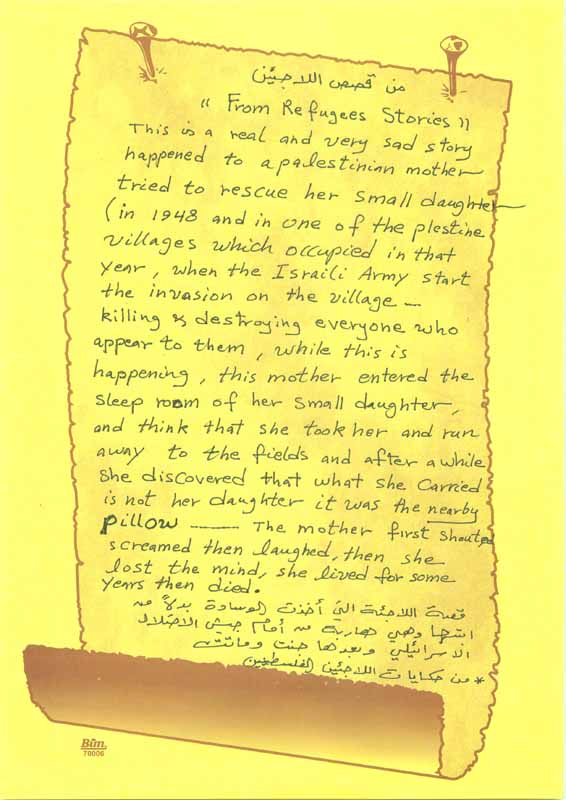 من قصص اللاجئين
" From Refugees Stories "
This is a real and very sad story
happened to a palestinian mother
tried to rescue her small daughter
(in 1948 and in one of the plestine
villages which occupied in that
year, when the Israili Army start
the invasion on the village —
killing & destroying everyone who
appear to them, while this is
happening, this mother entered the
sleep room of her small daughter,
and think that she took her and run
away to the fields and after a while
she discovered that what she carried
is not her daughter it was the nearby
pillow —— The mother first shouted
screamed then laughed, then she
lost the mind, she lived for some
years then died.
قصة اللاجئة التي أخذت الوسادة بدلاً من
ابنتها وهي هاربة من أمام جيش الاحتلال
الاسرائيلي وبعدها جنت وماتت
* من حكايات اللاجئين الفلسطينيين
Bim
70006